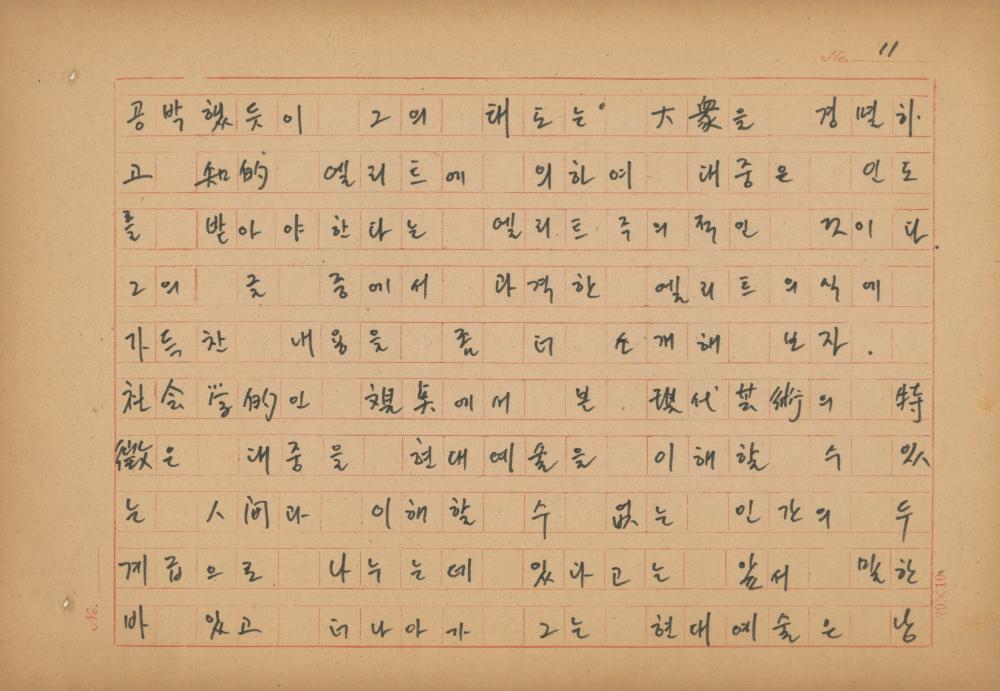 No. 11
공박했듯이 그의 태도는 大衆을 경멸하
고 知的 엘리트에 의하여 대중은 인도
를 받아야 한다는 엘리트주의적인 것이다.
그의 글 중에서 과격한 엘리트의식에
가득찬 내용을 좀 더 소개해 보자.
社会学的인 視角에서 본 現代芸術의 特
徵은 대중을 현대예술을 이해할 수 있
는 人间과 이해할 수 없는 인간의 두
계급으로 나누는데 있다고는 앞서 말한
바 있고 더 나아가 그는 현대예술은 낭
No.
20×10